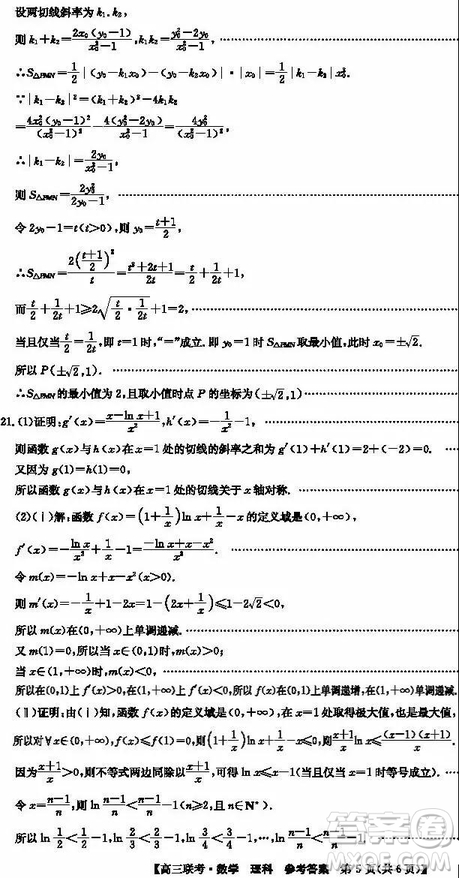 设两切线斜率为 k₁,k₂,
则 k₁+k₂=2x₀(y₀-1)/(x₀²-1),k₁k₂=(y₀²-2y₀)/(x₀²-1),
∴S△PMN=1/2|(y₀-k₁x₀)-(y₀-k₂x₀)|·|x₀|=1/2|k₁-k₂|x₀².
∵|k₁-k₂|²=(k₁+k₂)²-4k₁k₂
=4x₀²(y₀-1)²/(x₀²-1)²-4(y₀²-2y₀)/(x₀²-1)=4y₀²/(x₀²-1)²,
∴|k₁-k₂|=2y₀/(x₀²-1),
则 S△PMN=2y₀²/(2y₀-1),
令 2y₀-1=t(t>0),则 y₀=(t+1)/2,
∴S△PMN=2((t+1)/2)²/t=(t²+2t+1)/2t=t/2+1/2t+1,
而 t/2+1/2t+1≥2√(t/2·1/2t)+1=2,
当且仅当 t/2=1/2t,即 t=1 时,“=”成立. 即 y₀=1 时 S△PMN 取最小值,此时 x₀=±√2.
所以 P(±√2,1).
∴S△PMN 的最小值为 2,且取小值时点 P 的坐标为(±√2,1)
21. (1)证明:g′(x)=(x-ln x+1)/x²,h′(x)=-1/x-1,
则函数 g(x)与 h(x)在 x=1 处的切线的斜率之和为 g′(1)+h′(1)=2+(-2)=0.
又因为 g(1)=h(1)=0,
所以函数 g(x)与 h(x)在 x=1 处的切线关于 x 轴对称.
(2)(ⅰ)解:函数 f(x)=(1+1/x)ln x+1/x-x 的定义域是(0,+∞),
f′(x)=-ln x/x²+1/x-1=(-ln x+x-x²)/x².
令 m(x)=-ln x+x-x²(x>0).
则 m′(x)=-1/x+1-2x=1-(2x+1/x)≤1-2√2<0,
所以 m(x)在(0,+∞)上单调递减.
又 m(1)=0,所以当 x∈(0,1)时,m(x)>0;
当 x∈(1,+∞)时,m(x)<0.
所以在(0,1)上 f′(x)>0,在(1,+∞)上 f′(x)<0,所以 f(x)在(0,1)上单调递增,在(1,+∞)上单调递减.
(ⅱ)证明:由(ⅰ)知,函数 f(x)的定义域是(0,+∞),在 x=1 处取得极大值,也是最大值,
所以对∀x∈(0,+∞),f(x)≤f(1)=0,即有(1+1/x)ln x≤x-1/x,则 (x+1)/x ln x≤(x-1)(x+1)/x.
因为 (x+1)/x>0,则不等式两边同除以 (x+1)/x,可得 ln x≤x-1(当且仅当 x=1 时等号成立).
令 x=(n-1)/n,则 ln (n-1)/n<(n-1)/n-1=-1/n(n∈N*).
所以 ln 1/2<1/2-1,ln 2/3<2/3-1,ln 3/4<3/4-1,…,ln (n-1)/n<(n-1)/n-1,
【高三联考·数学 理科 参考答案 第 5 页(共 6 页)】